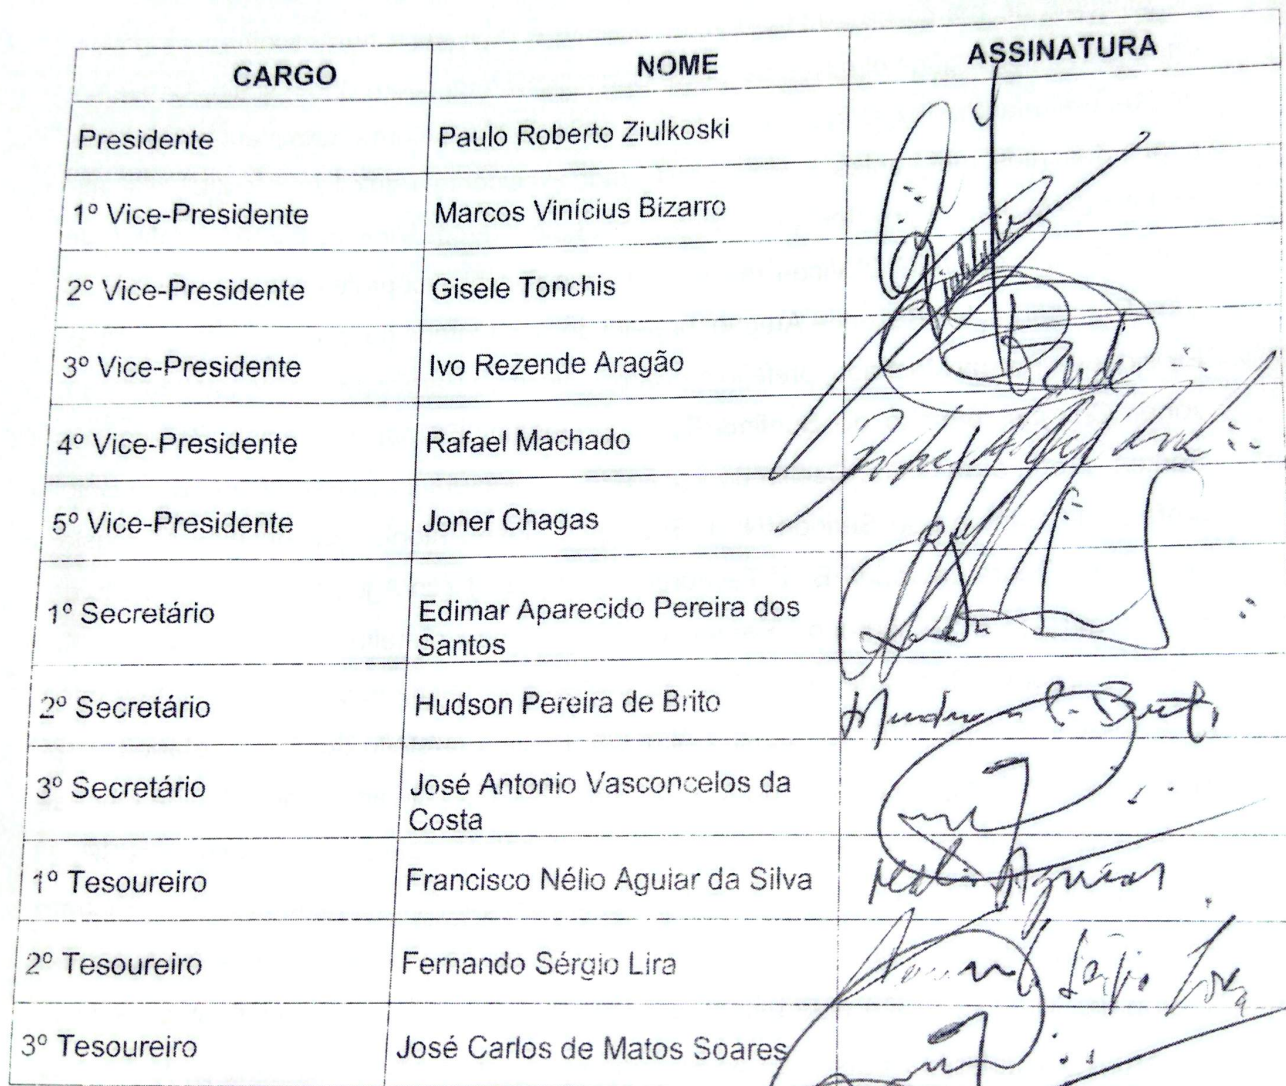 CARGO NOME ASSINATURA
Presidente Paulo Roberto Ziulkoski
1º Vice-Presidente Marcos Vinícius Bizarro
2º Vice-Presidente Gisele Tonchis
3º Vice-Presidente Ivo Rezende Aragão
4º Vice-Presidente Rafael Machado
5º Vice-Presidente Joner Chagas
1º Secretário Edimar Aparecido Pereira dos
Santos
2º Secretário Hudson Pereira de Brito
3º Secretário José Antonio Vasconcelos da
Costa
1º Tesoureiro Francisco Nélio Aguiar da Silva
2º Tesoureiro Fernando Sérgio Lira
3º Tesoureiro José Carlos de Matos Soares